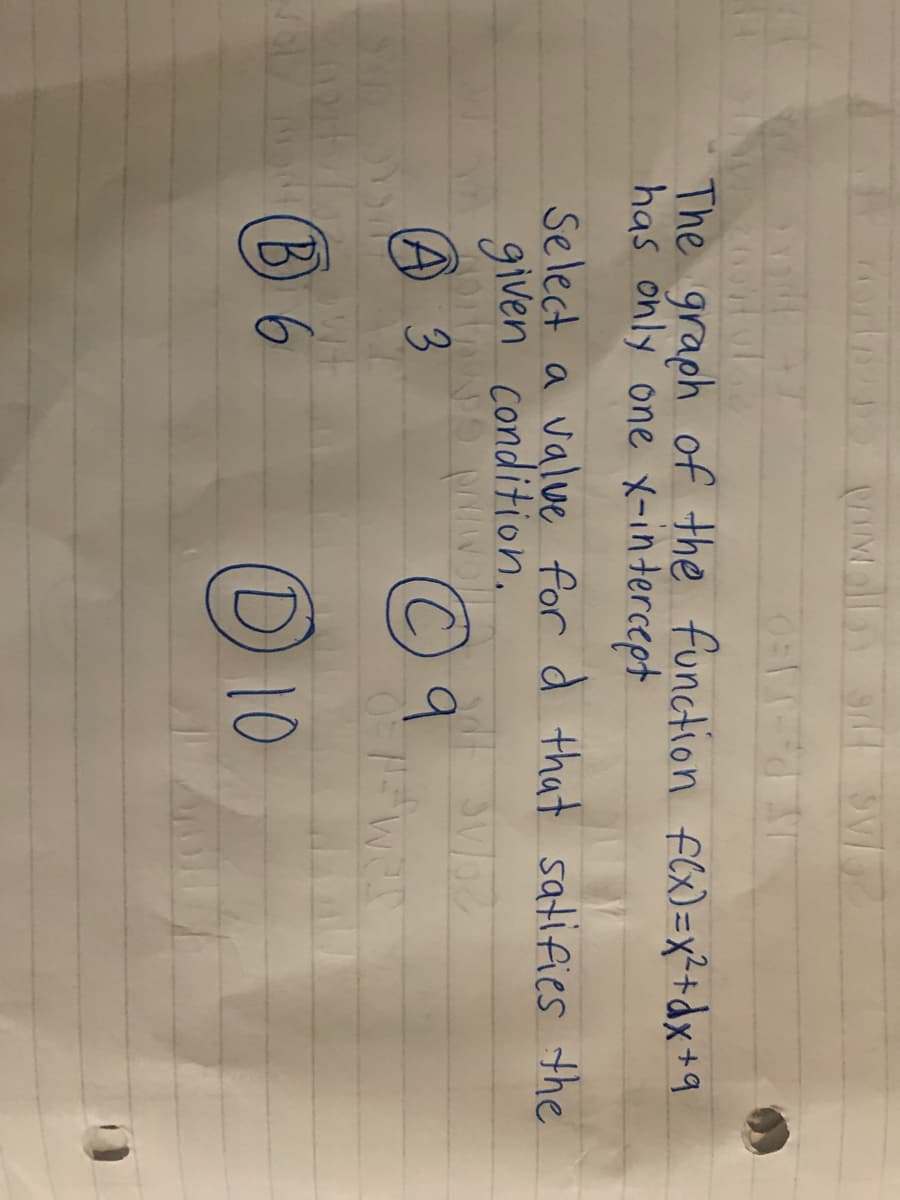 The graph of the function f(x)=x²+dx+9
has only one x-intercept
Select a value for d that satifies the
given condition.
Ⓐ 3
Ⓒ 9
Ⓑ 6
Ⓓ 10